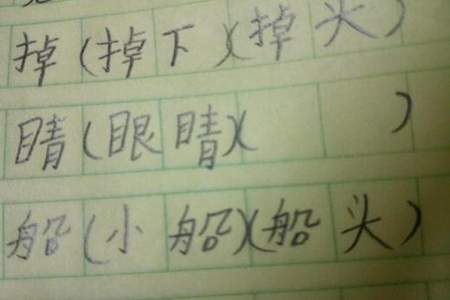 掉(掉下)(掉头)
睛(眼睛)( )
船(小船)(船头)